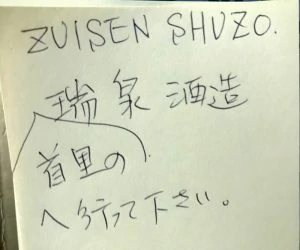 ZUISEN SHUZO.
瑞泉酒造
首里の
へ行って下さい。